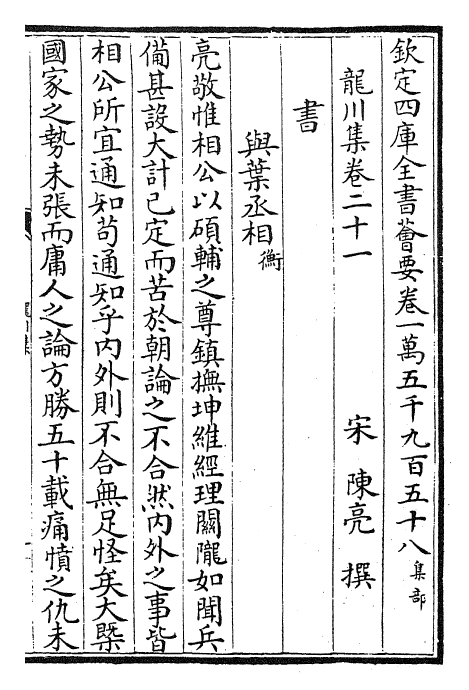 欽定四庫全書薈要卷一萬五千九百五十八集部
龍川集卷二十一
宋 陳亮 撰
書
與葉丞相衡
亮敬惟相公以碩輔之尊鎮撫坤維經理關隴如聞兵
備甚設大計已定而苦於朝論之不合然内外之事皆
相公所宜通知苟通知乎内外則不合無足怪矣大槩
國家之勢未張而庸人之論方勝五十載痛憤之仇未